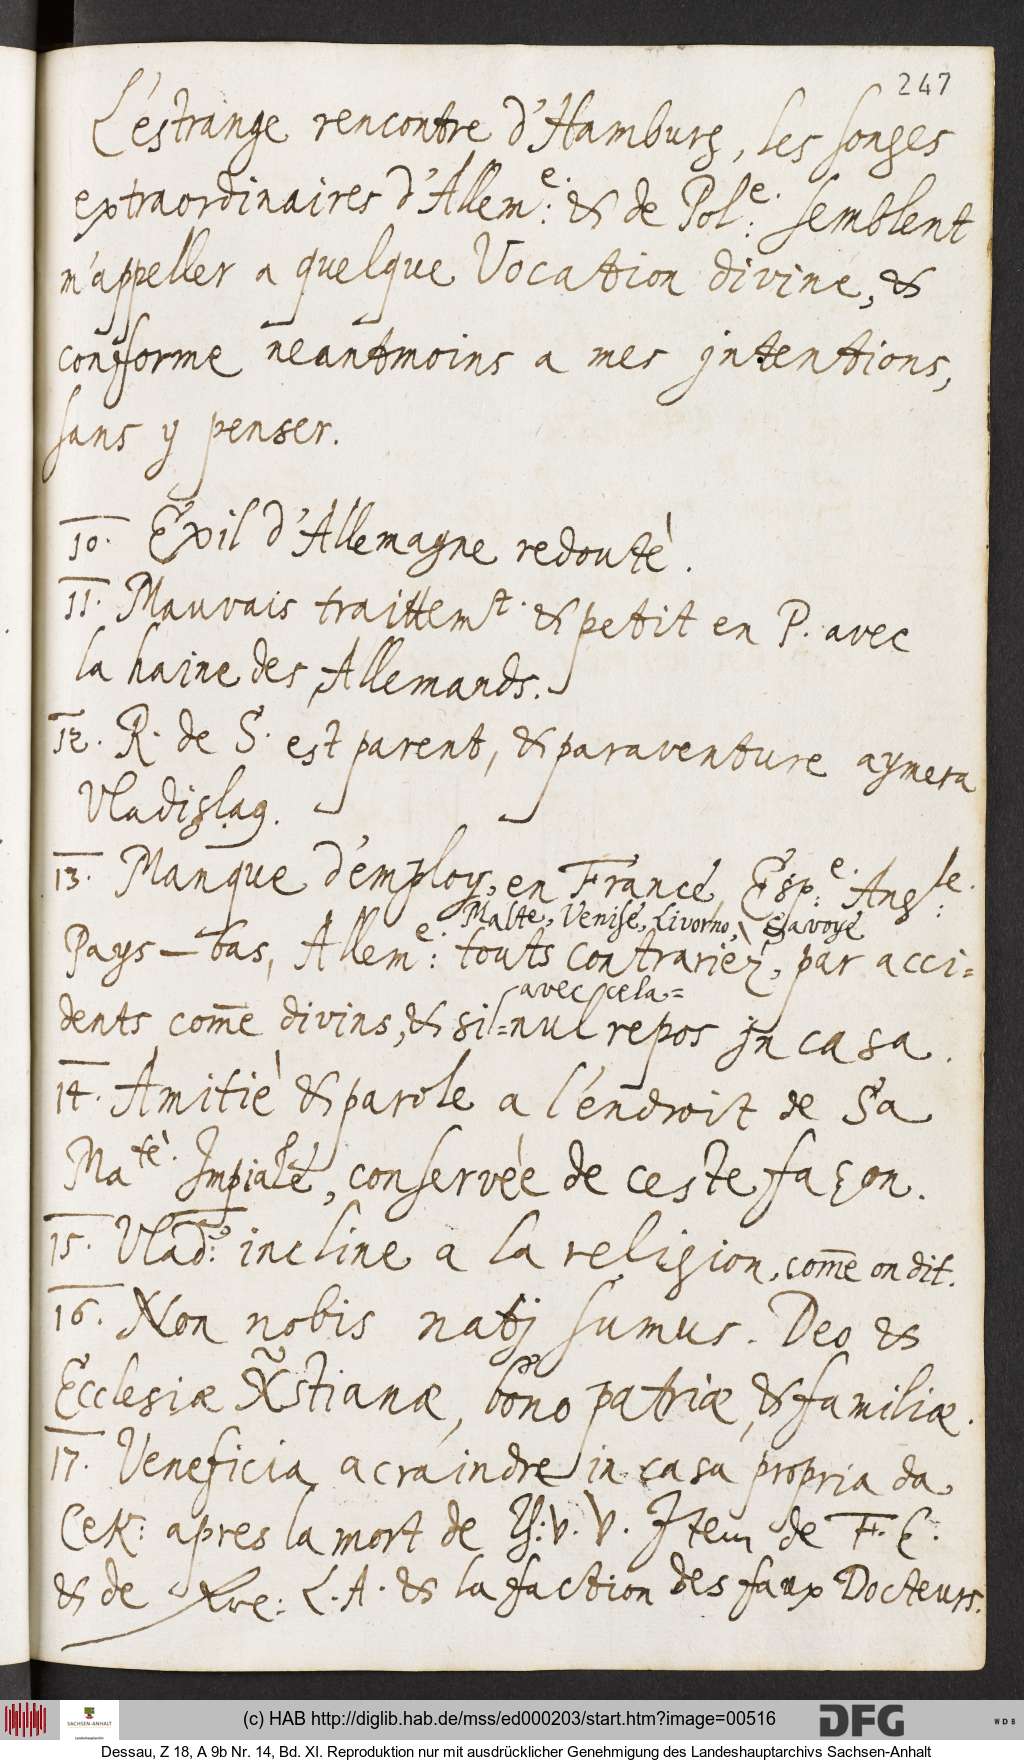 247
L'estrange rencontre d'Hamburg, les songes
extraordinaires d'Allem:e. & de Pol:e. semblent
m'appeller a quelque Vocation divine, &
conforme neantmoins a mes jntentions,
sans y penser.
10. Exil d'Allemagne redouté.
11. Mauvais traittemt. & petit en P. avec
la haine des Allemands.
12. R. de S. est parent, & paraventure aymera
Vladislaq.
13. Manque d'employ, en France, Esp:e. Angl:e.
Malte, Venise, Livorno, Savoye
Pays-bas, Allem:e. touts contrariez, par acci=
avec cela=
dents com̅e divins, & si=nul repos jn casa.
14. Amitié & parole a l'endroit de Sa
Matè. Impiale, conservée de ceste façon.
15. Vlad: incline a la religion, com̅e on dit.
16. Non nobis natj sumus. Deo &
Ecclesiæ Xstianæ, bono patriæ, & familiæ.
17. Veneficia a craindre in casa propria da
CeK: apres la mort de Th: v. V. Jtem de F. C.
& de L. A. & la faction des faux Docteurs.
(c) HAB http://diglib.hab.de/mss/ed000203/start.htm?image=00516
SACHSEN-ANHALT
DFG
WDB
Dessau, Z 18, A 9b Nr. 14, Bd. XI. Reproduktion nur mit ausdrücklicher Genehmigung des Landeshauptarchivs Sachsen-Anhalt